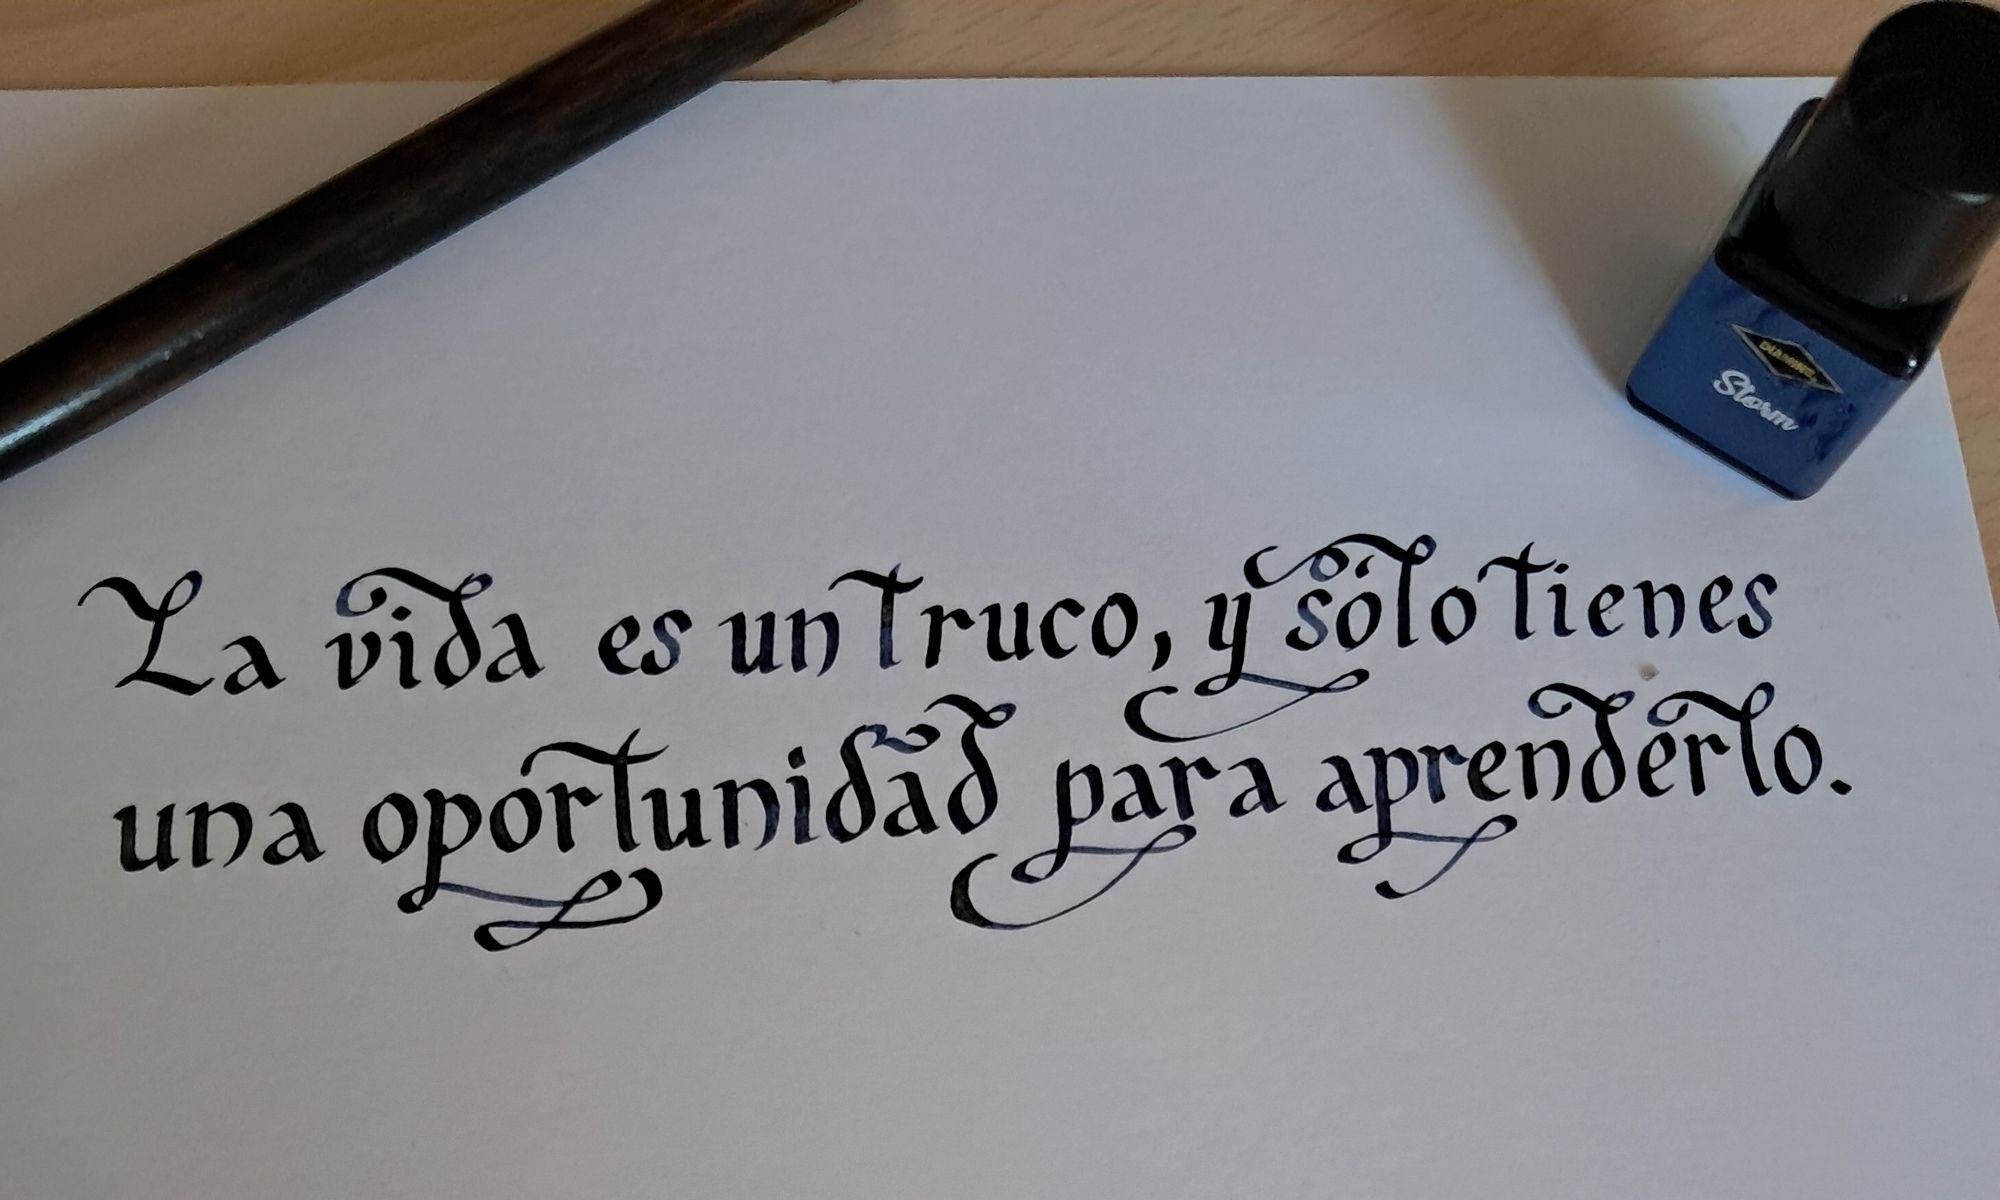 DIAMINE
Storm
La vida es un truco, y sólo tienes
una oportunidad para aprenderlo.